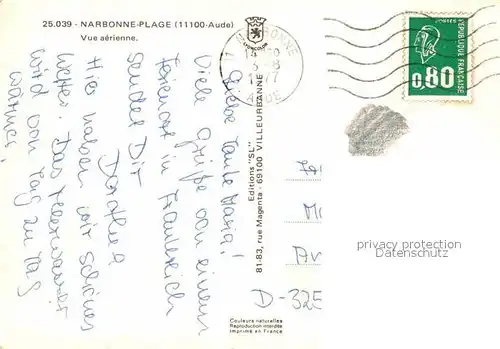 25.039 - NARBONNE-PLAGE (11100-Aude)
Vue aérienne.
Liebe Tante Maria!
Viele Grüße von einem
Ferienort in Frankreich
sendet Dir
Dorothee
Hier haben wir schönes
Wetter. Das Meerwasser
wird von Tag zu Tag
wärmer.
Editions "SL"
81-83, rue Magenta - 69100 VILLEURBANNE
Couleurs naturelles
Reproduction interdite
Imprimé en France
11 NARBONNE
1977
AUDE
REPUBLIQUE FRANÇAISE
0,80
D-325
privacy protection
Datenschutz